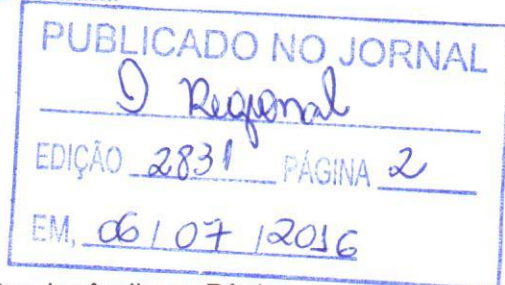 PUBLICADO NO JORNAL
O Regional
EDIÇÃO 2831 PÁGINA 2
EM, 06 / 07 / 2016